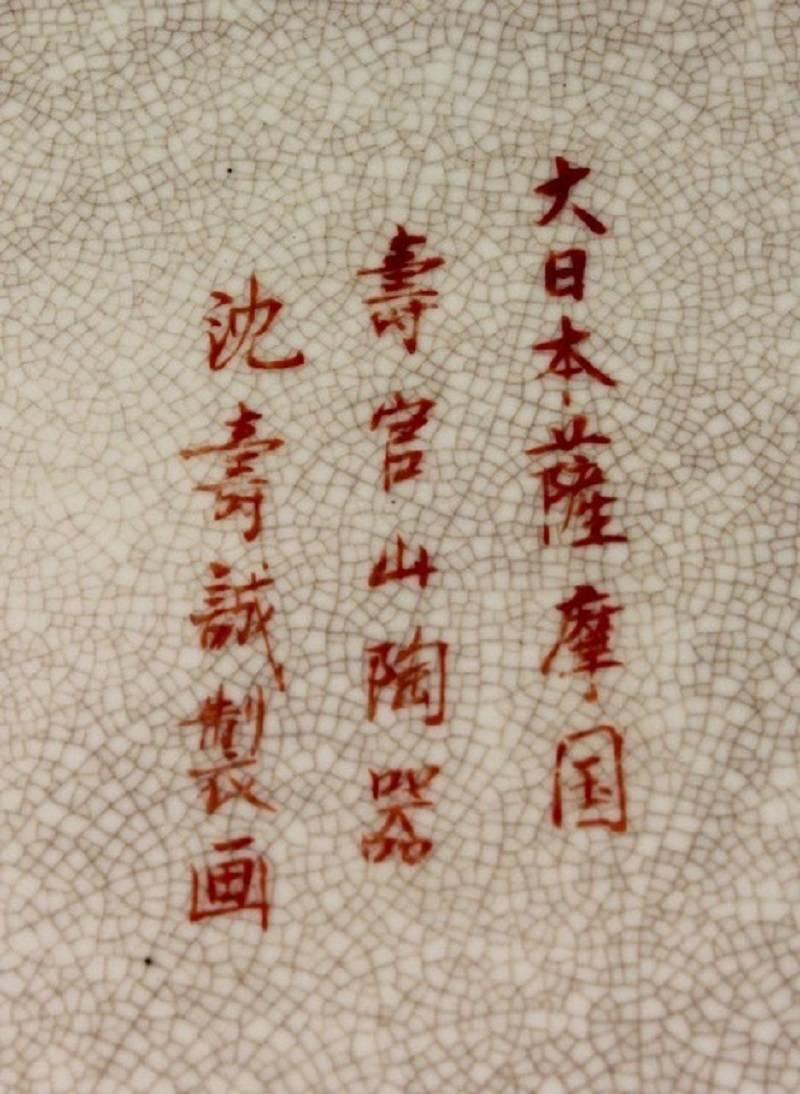 大日本薩摩国
壽官山陶器
沈壽誠製画